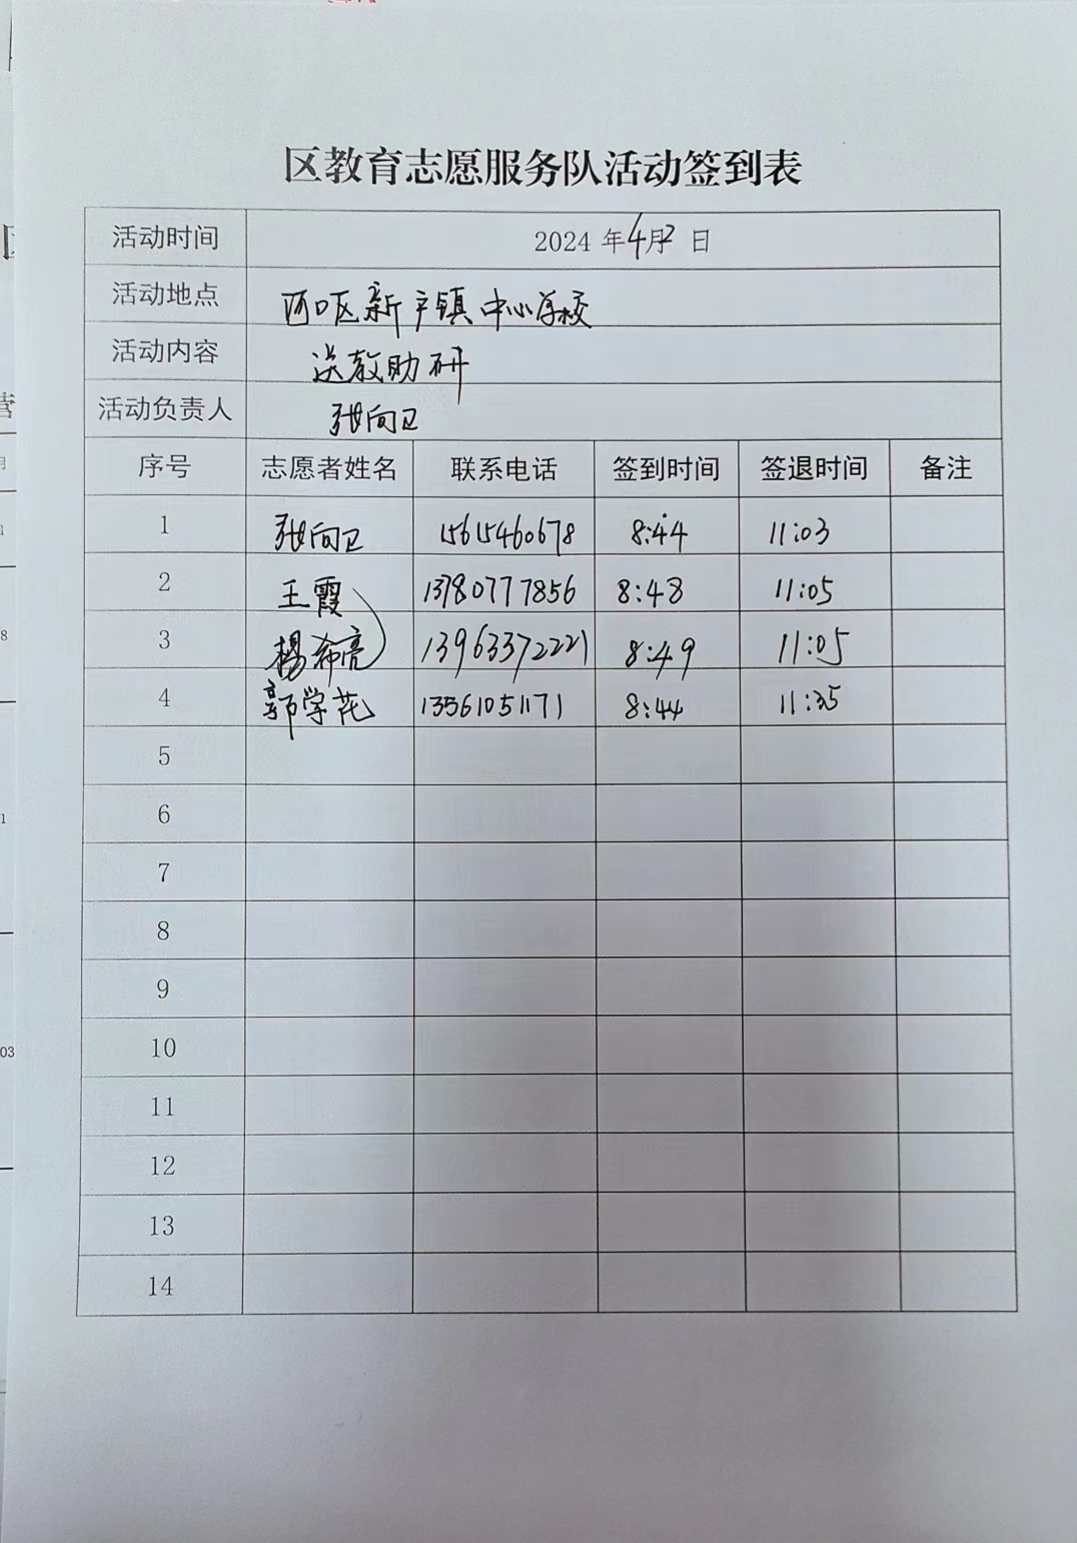 区教育志愿服务队活动签到表
活动时间 2024 年4月2日
活动地点 河口区新户镇中心学校
活动内容 送教助研
活动负责人 张向卫
序号 志愿者姓名 联系电话 签到时间 签退时间 备注
1 张向卫 15615460678 8:44 11:03
2 王霞 13780777856 8:48 11:05
3 杨希亮 13963372221 8:49 11:05
4 郭学花 13561051171 8:44 11:35
5
6
7
8
9
10
11
12
13
14